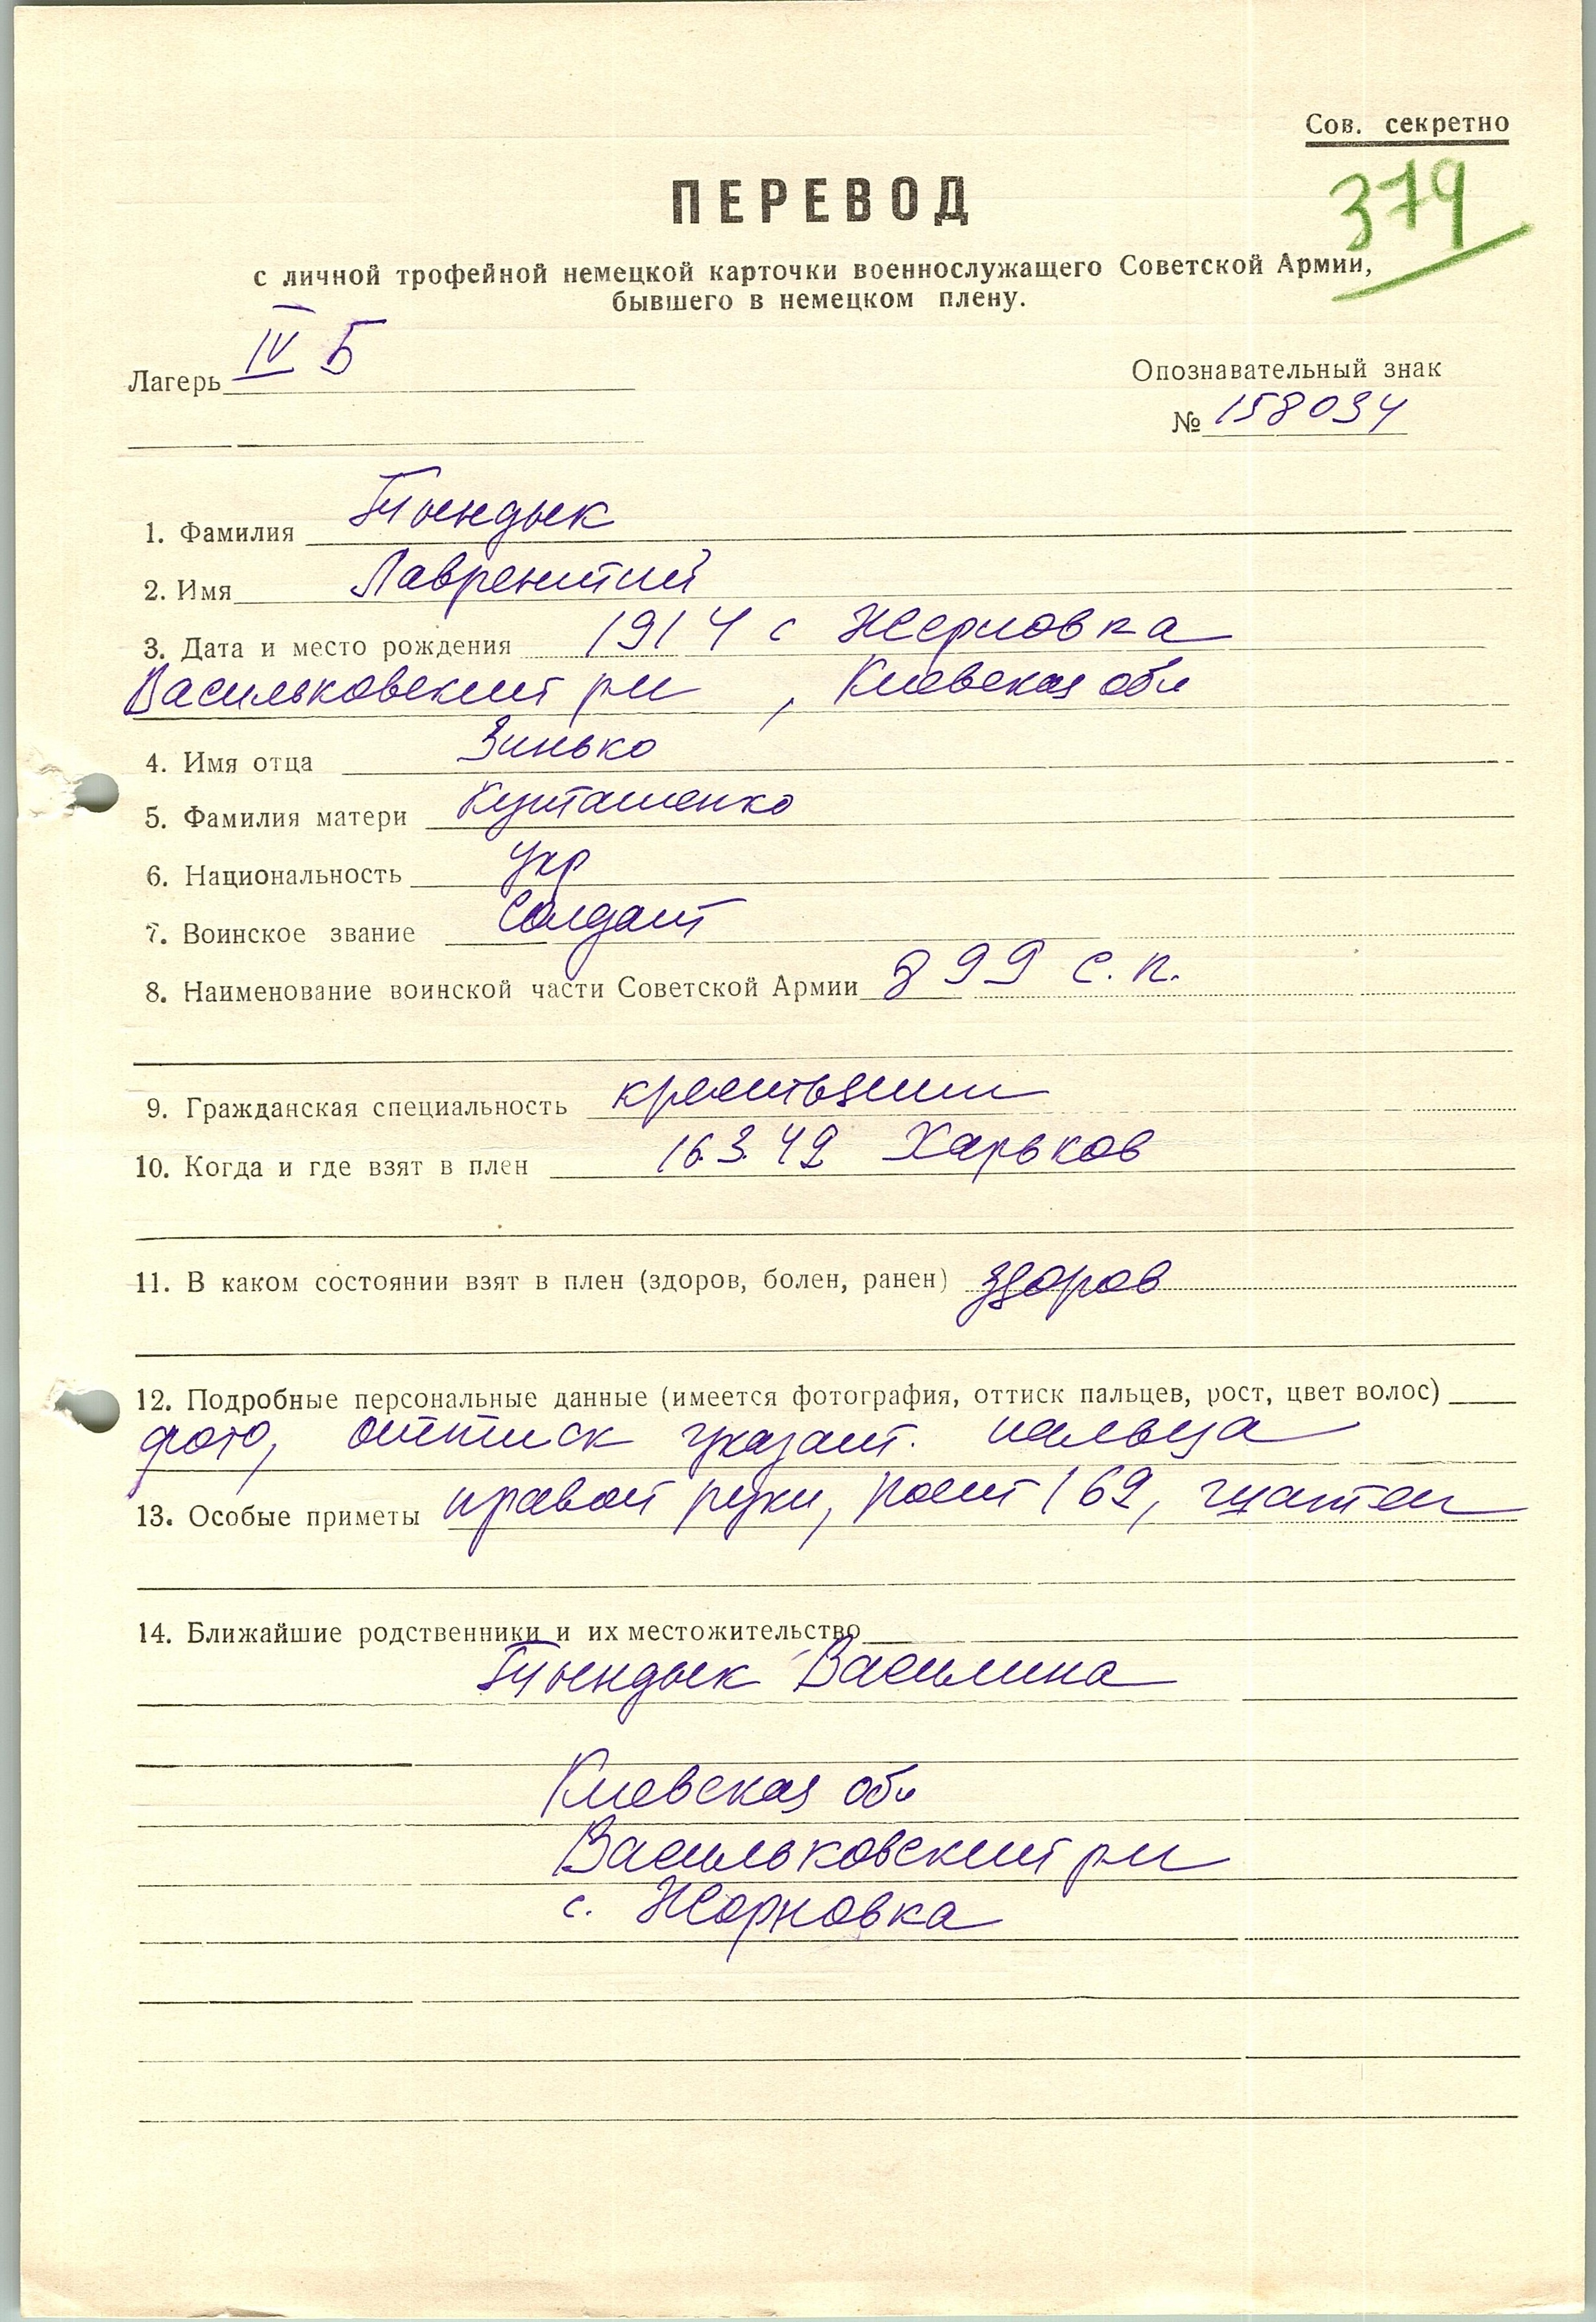 Сов. секретно
379
ПЕРЕВОД
с личной трофейной немецкой карточки военнослужащего Советской Армии,
бывшего в немецком плену.
Лагерь IV Б
Опознавательный знак
№ 158034
1. Фамилия Тындык
2. Имя Лаврентий
3. Дата и место рождения 1914 с Жерновка
Васильковский рн, Киевская обл
4. Имя отца Зинько
5. Фамилия матери
6. Национальность укр
7. Воинское звание Солдат
8. Наименование воинской части Советской Армии 899 с.п.
9. Гражданская специальность крестьянин
10. Когда и где взят в плен 16.3.42 Харьков
11. В каком состоянии взят в плен (здоров, болен, ранен) здоров
12. Подробные персональные данные (имеется фотография, оттиск пальцев, рост, цвет волос)
фото, оттиск указат. пальца
13. Особые приметы правой руки, рост 169, шатен
14. Ближайшие родственники и их местожительство
Тындык Василина
Киевская обл
Васильковский рн
с. Жорновка